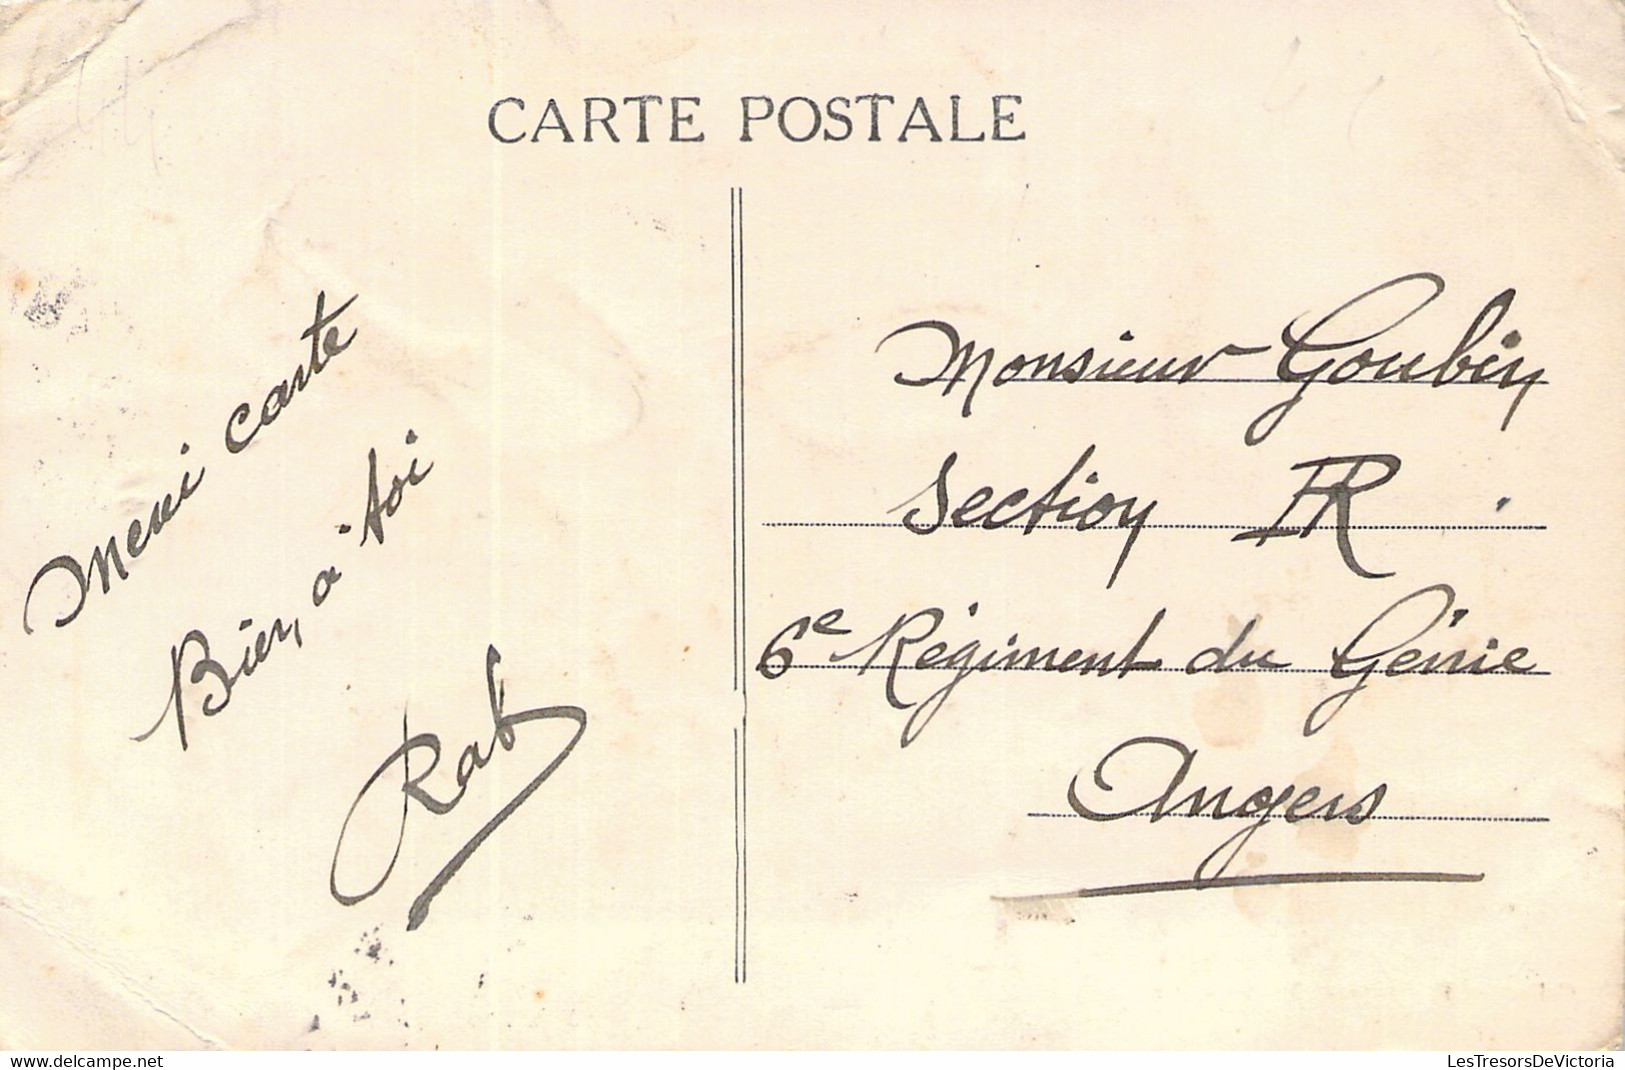 CARTE POSTALE
Merci carte
Bien à toi
Rab
Monsieur Goubin
Section
6e Régiment du Génie
Angers
www.delcampe.net
LesTresorsDeVictoria